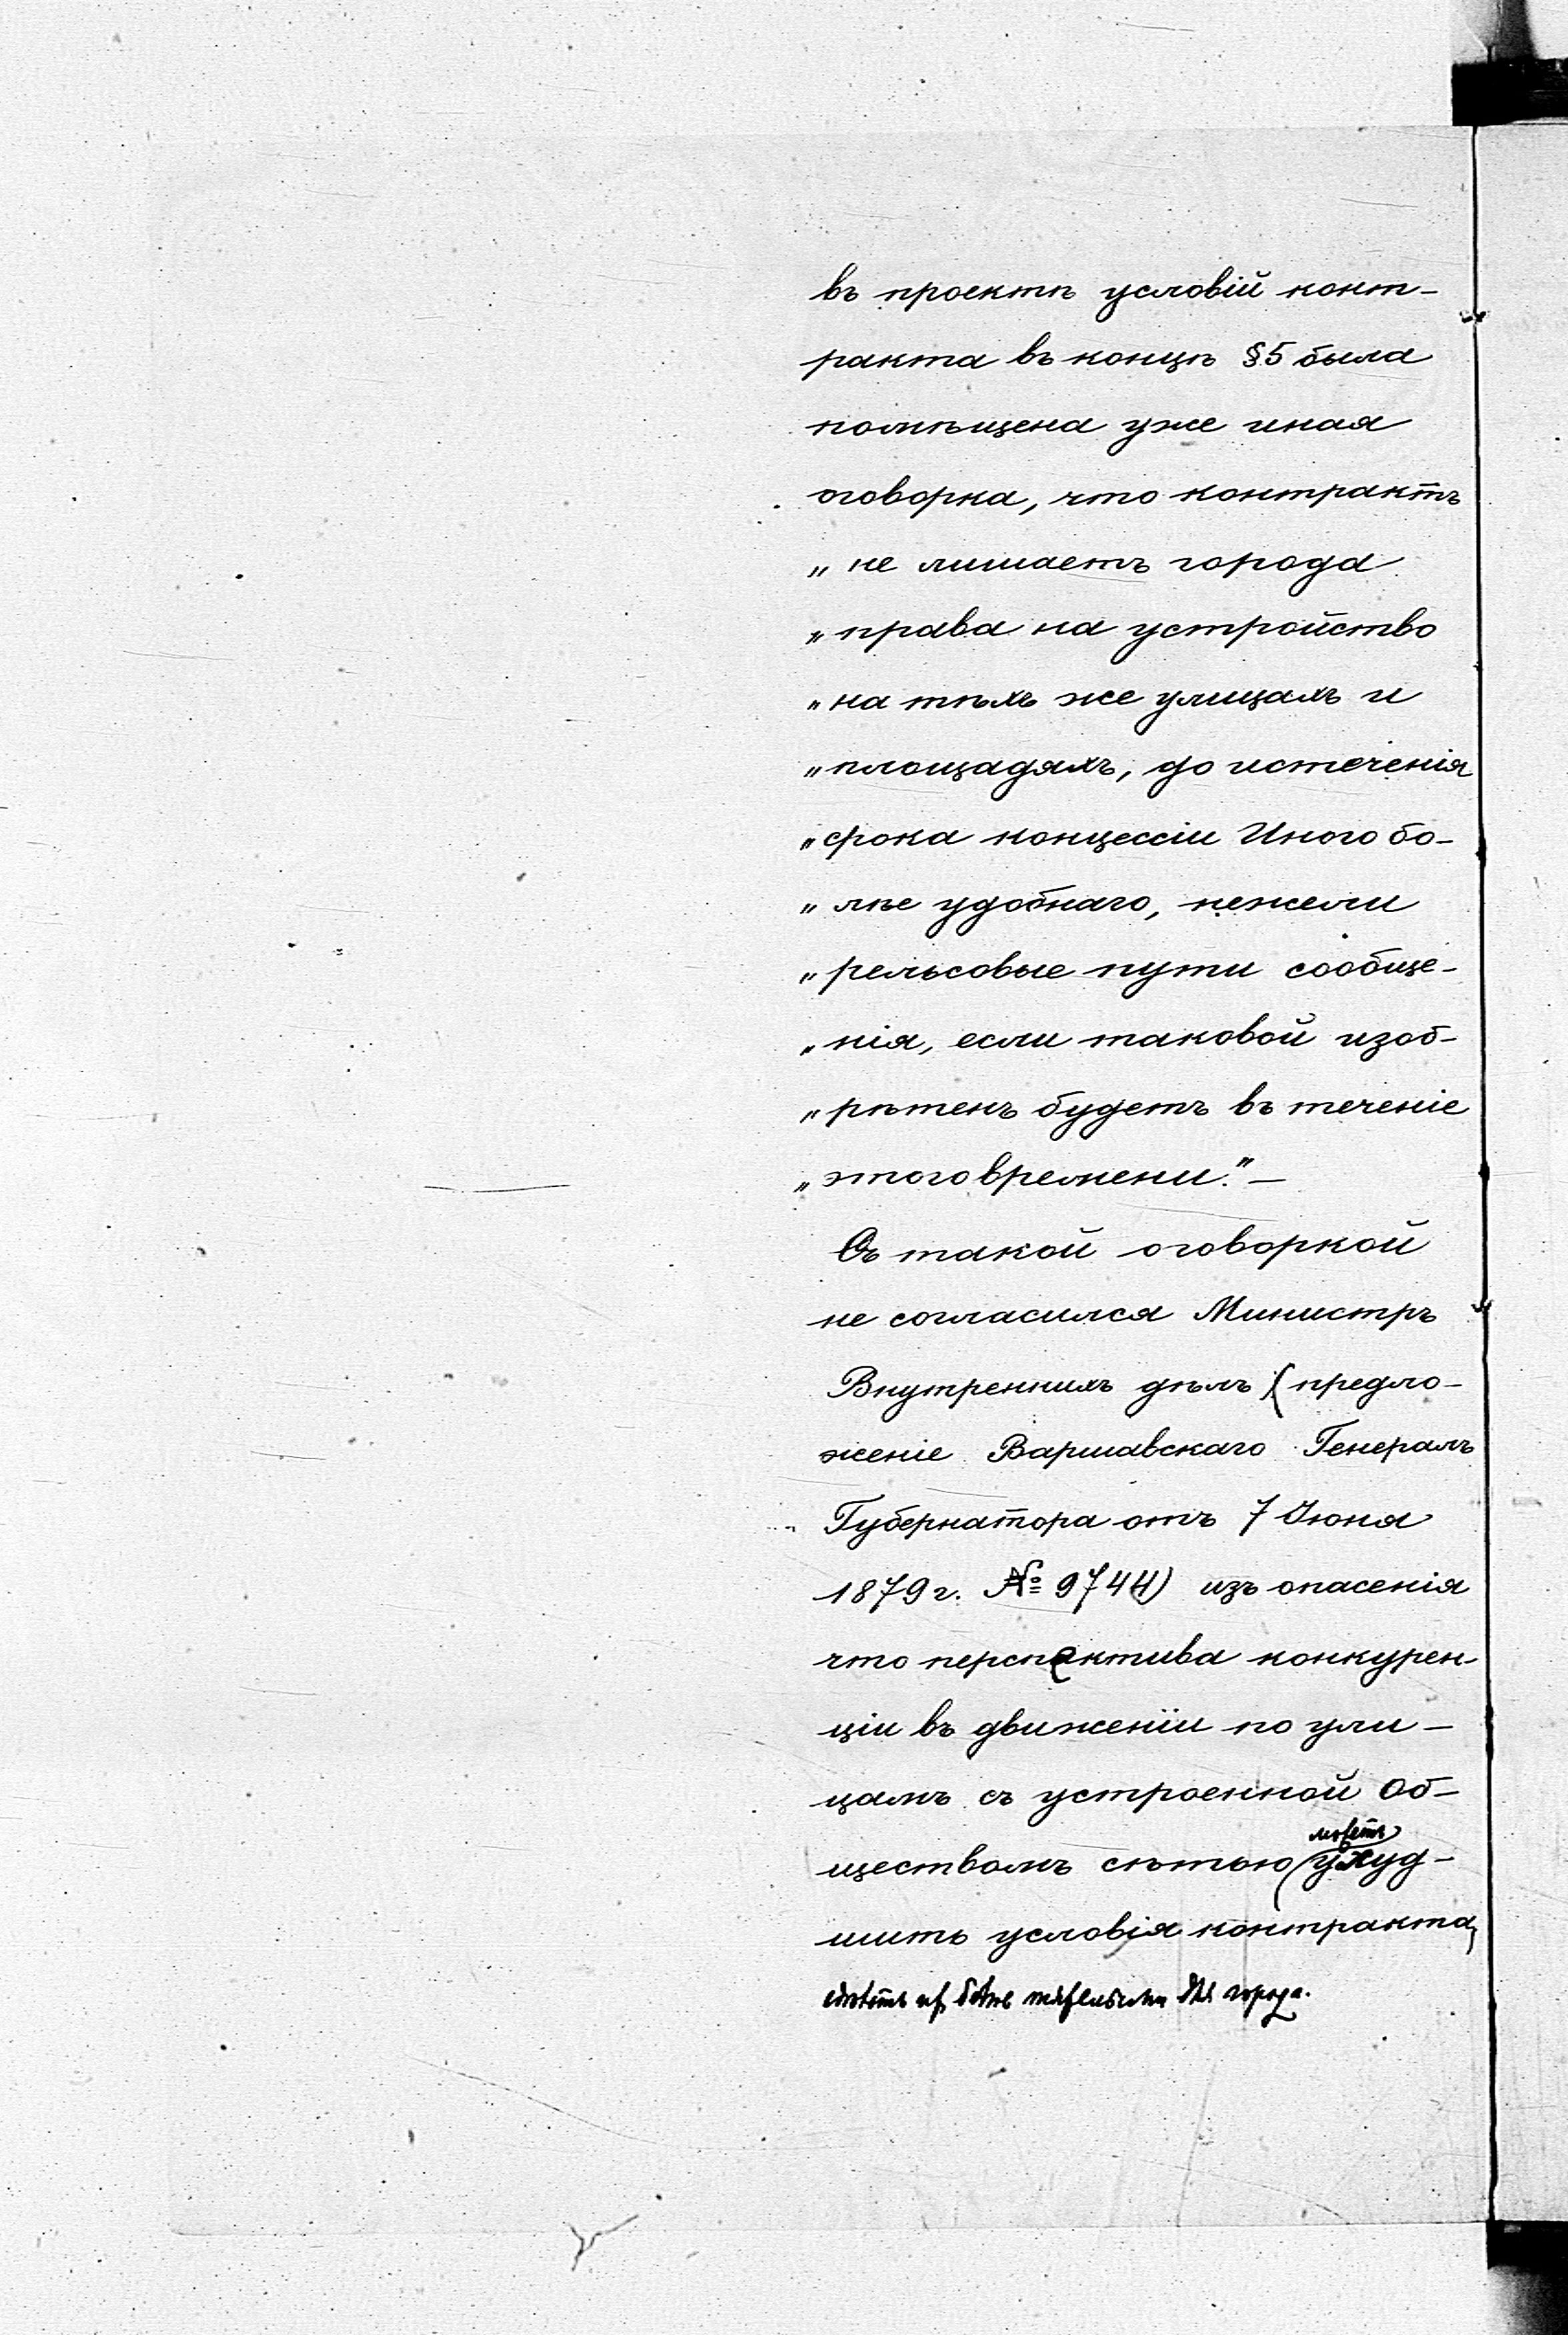 въ проектѣ условій конт-
ракта въ концѣ §5 была
помѣщена уже иная
оговорка, что контрактъ
„ не лишаетъ города
„ права на устройство
„ на тѣхъ же улицахъ и
„ площадяхъ, до истеченія
„ срока концессіи Иного бо-
„ лѣе удобнаго, нежели
„ рельсовые пути сообще-
„ нія, если таковой изоб-
„ рѣтенъ будетъ въ теченіе
„ этого времени." —
Съ такой оговоркой
не согласился Министръ
Внутреннихъ дѣлъ (предло-
женіе Варшавскаго Генералъ
Губернатора отъ 7 Іюня
1879 г. № 9744) изъ опасенія
что перспектива конкурен-
ціи въ движеніи по ули-
цамъ съ устроенной Об-
ществомъ сѣтью можетъ ухуд-
шить условія контракта,
сдѣлать их болѣе тяжелыми для города.